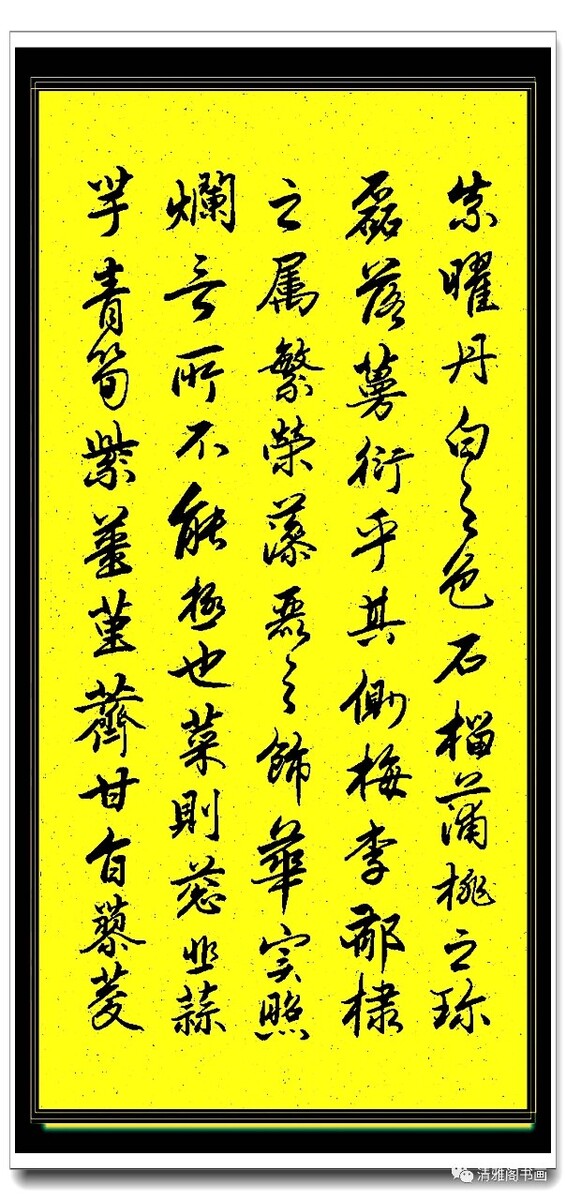 柰曜丹白之色石榴蒲桃之珍
磊落蔓衍乎其側梅李郁棣
之属繁榮藻麗之飾華実照
爛言所不能極也菜則葱韭蒜
芋青筍紫薑堇薺甘旨蓼荾
清雅阁书画